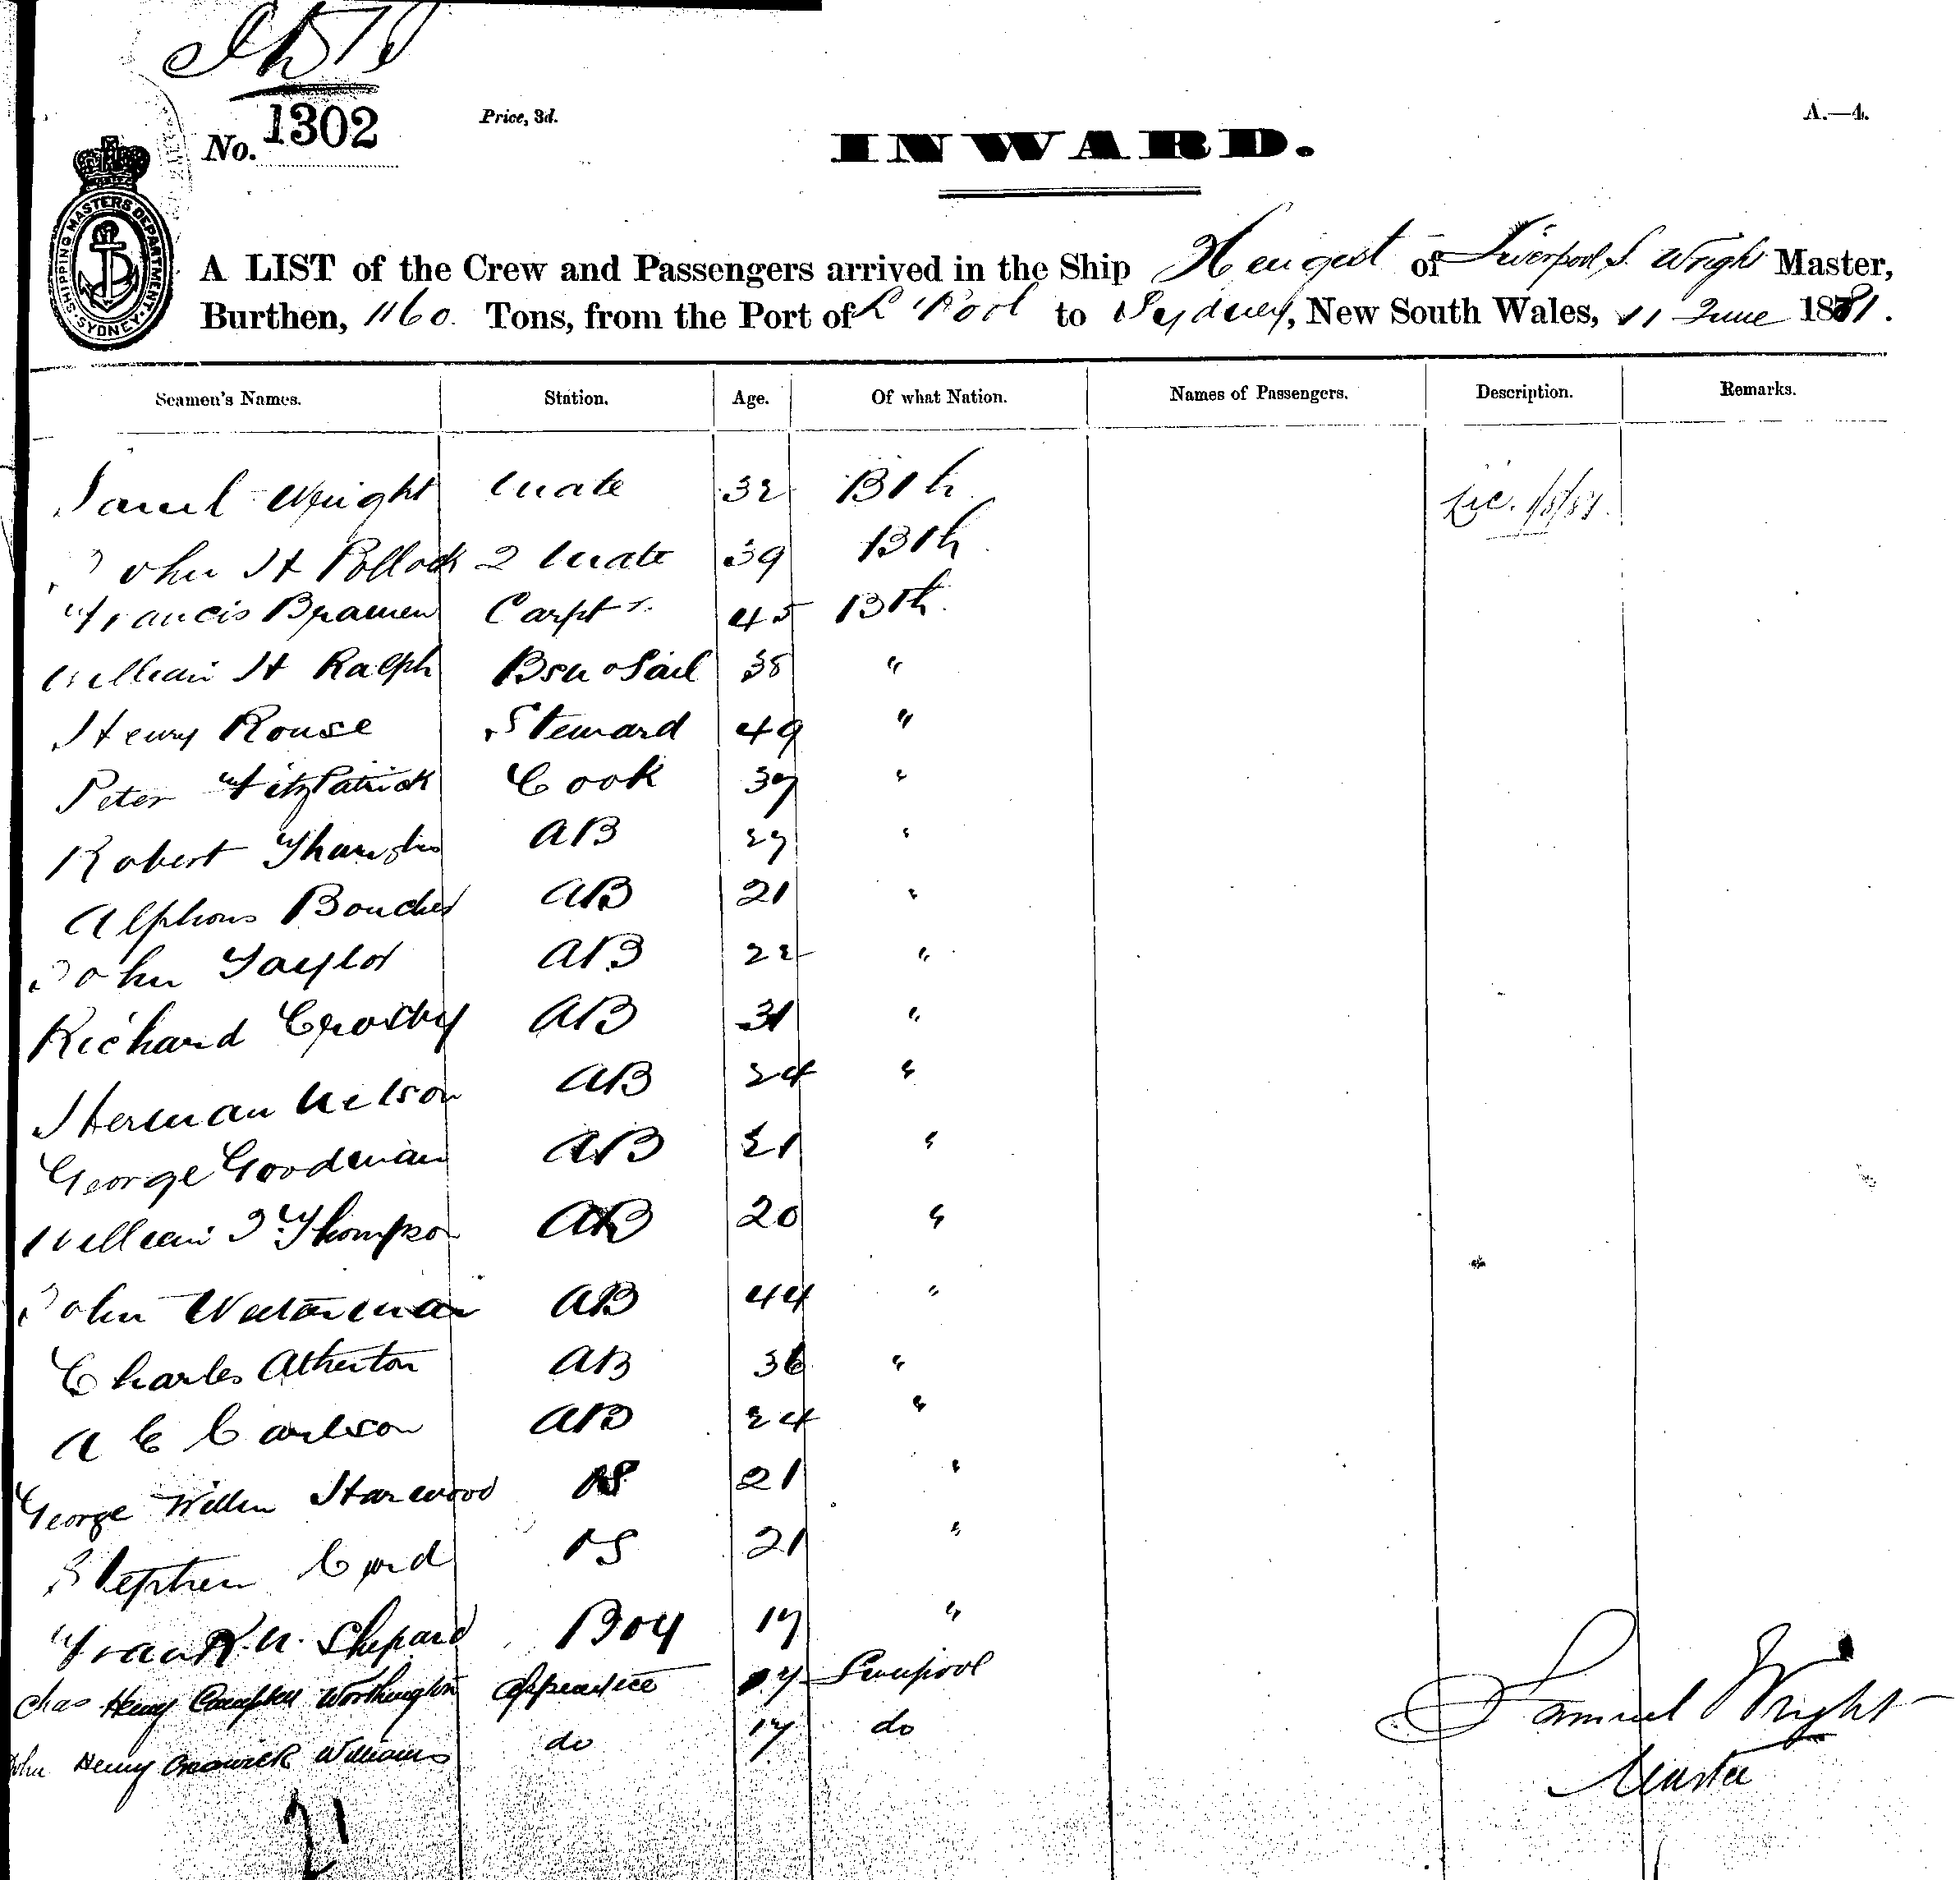 No. 1302
Price, 3d.
A.—4.
INWARD.
SHIPPING MASTERS DEPARTMENT SYDNEY
A LIST of the Crew and Passengers arrived in the Ship Hengist of Liverpool S. Wright Master,
Burthen, 1160 Tons, from the Port of L'Pool to Sydney, New South Wales, 11 June 1881.
Seamen's Names. Station. Age. Of what Nation. Names of Passengers. Description. Remarks.
Saml Wright Mate 32 Bth
John H Pollock 2 Mate 39 Bth
Francis Bramen Carptr. 45 Bth
William H Ralph Bsn & Sail 38 "
Henry Rouse Steward 49 "
Peter FitzPatrick Cook 37 "
Robert AB 27 "
Alphons Boucher AB 21 "
John Taylor AB 22 "
Richard Crosby AB 31 "
Herman Nelson AB 24 "
George Goodman AB 21 "
William J Thompson AB 20 "
John Waterman AB 44 "
Charles Atherton AB 36 "
A C Carlson AB 24 "
George Willm Harwood OS 21 "
Stephen OS 21 "
Frank N. Shepard Boy 17 "
Chas Henry Campbell Worthington Apprentice 17 Liverpool
John Henry Williams do 17 do
21
Lic. 1/8/81.
Samuel Wright
Master